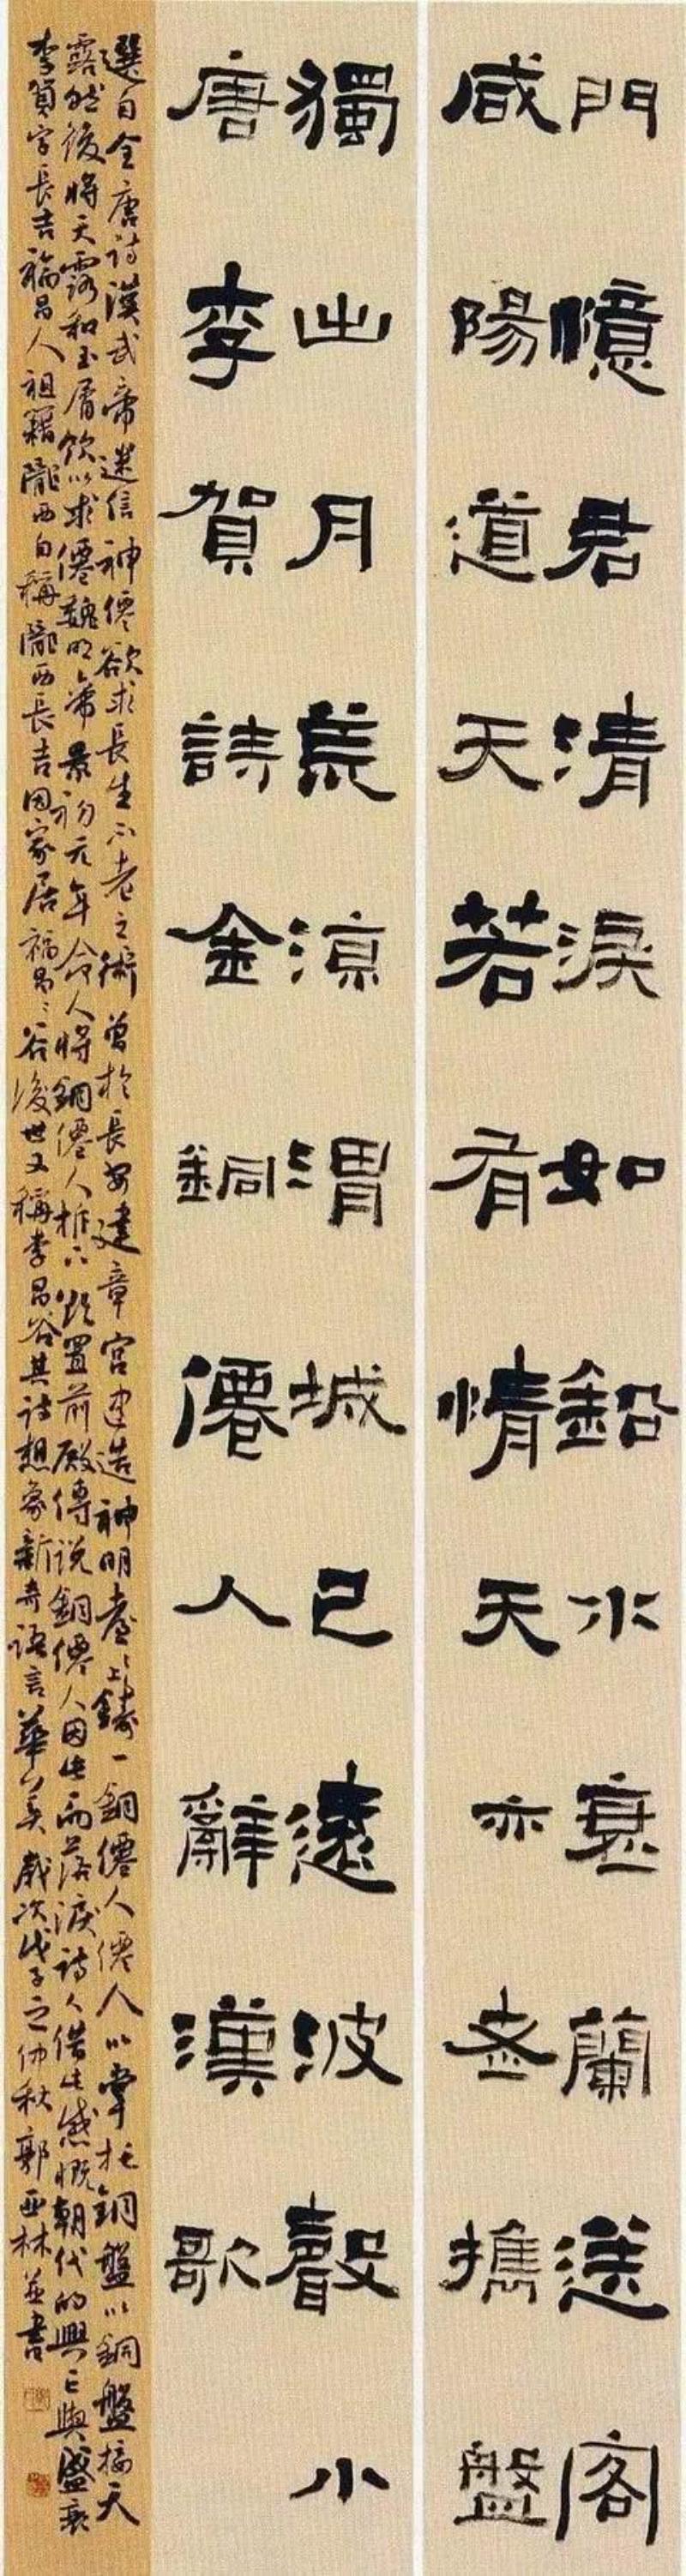 門憶君清淚如鉛水衰蘭送客
咸陽道天若有情天亦老攜盤
獨出月荒涼渭城已遠波聲小
唐李賀詩金銅僊人辭漢歌
選自全唐詩漢武帝迷信神僊欲求長生不老之術曾於長安建章宮建造神明臺上鑄一銅僊人僊人以掌托銅盤以銅盤接天
露然後將天露和玉屑飲以求僊魏明帝景初元年令人將銅僊人拆下欲置前殿傳說銅僊人因此而落淚詩人借此感慨朝代的興亡與盛衰
李賀字長吉福昌人祖籍隴西自稱隴西長吉因家居福昌昌谷後世又稱李昌谷其詩想象新奇語言華美歲次戊子之仲秋郭亞林並書